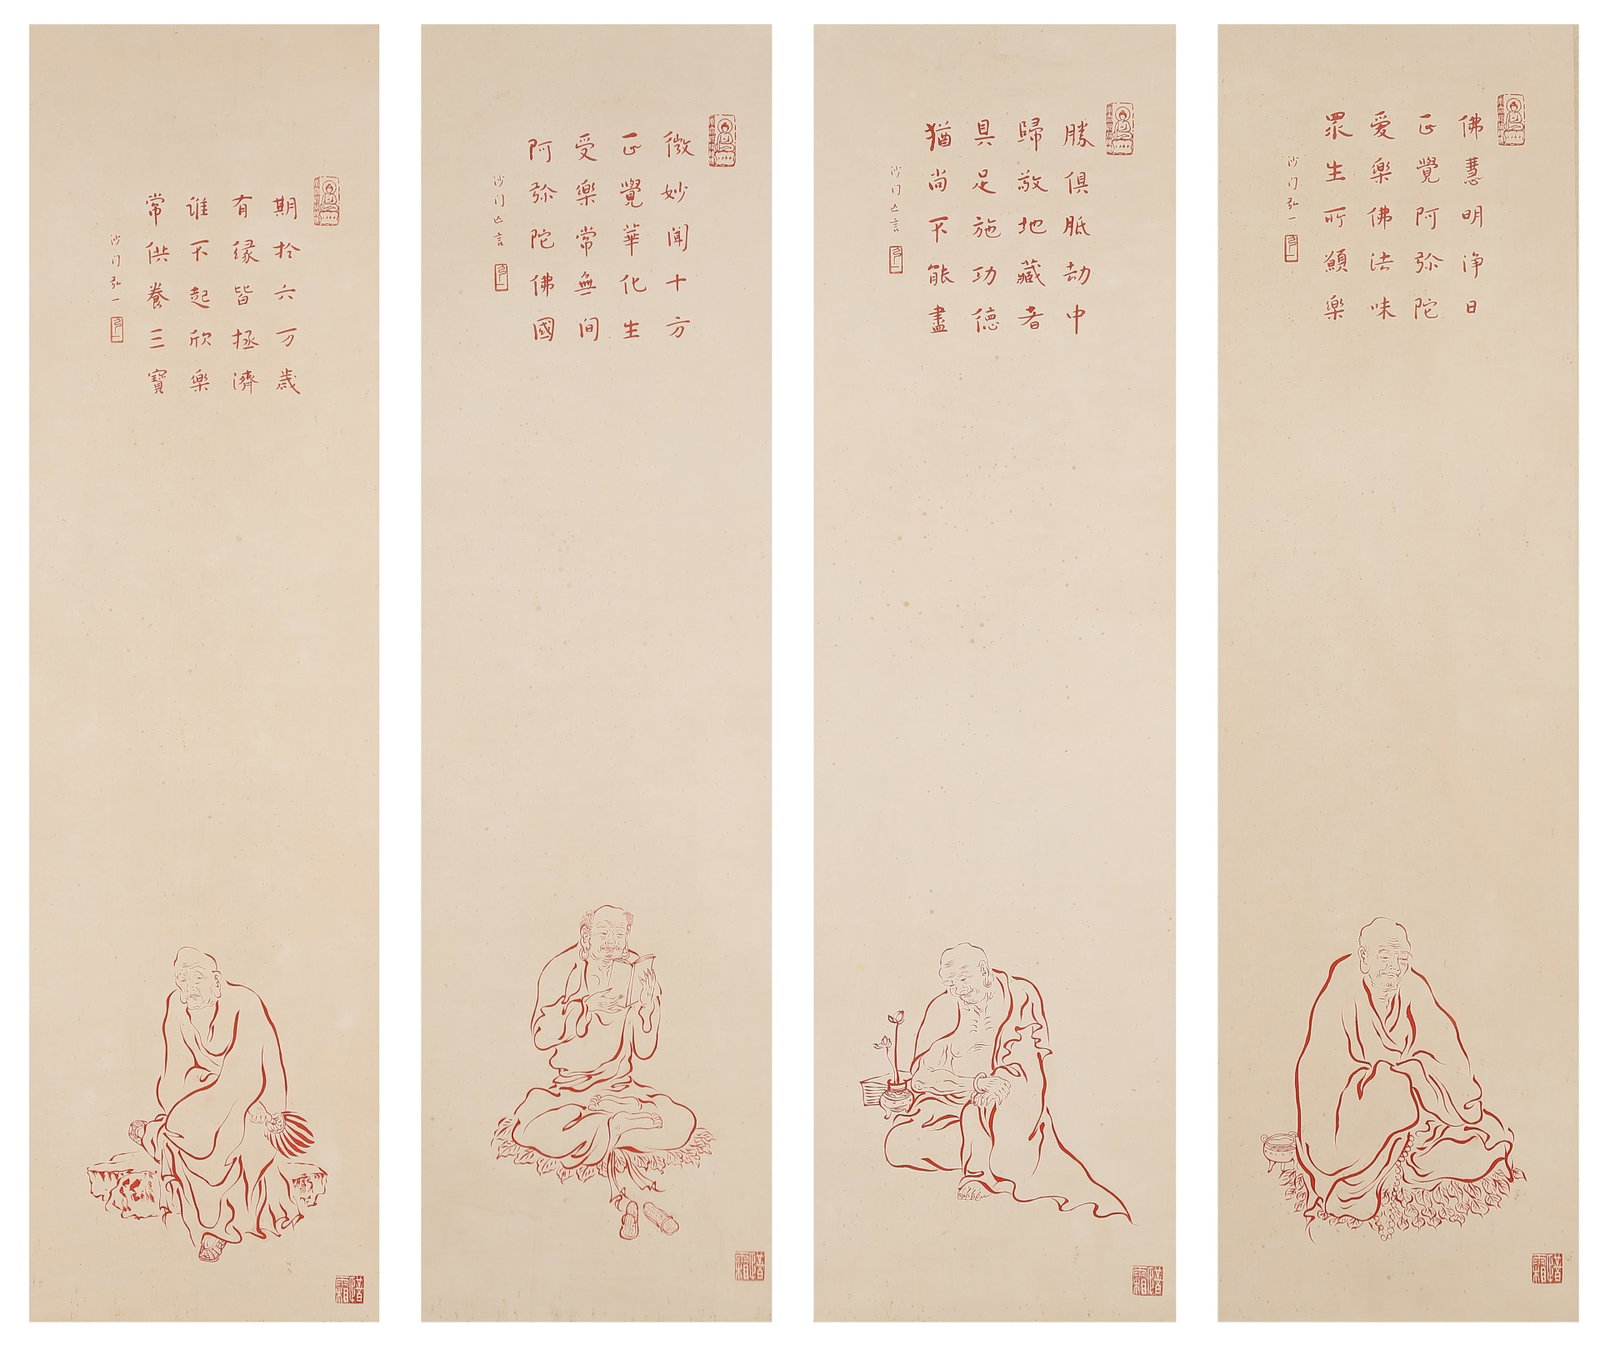 佛慧明浄日
正覺阿弥陀
愛樂佛法味
眾生所願樂
沙门弘一
勝俱胝劫中
歸敬地藏者
具足施功德
猶尚不能盡
沙门亡言
微妙闻十方
正覺華化生
受樂常無间
阿弥陀佛國
沙门亡言
期於六万歲
有缘皆拯濟
谁不起欣樂
常供養三寶
沙门弘一